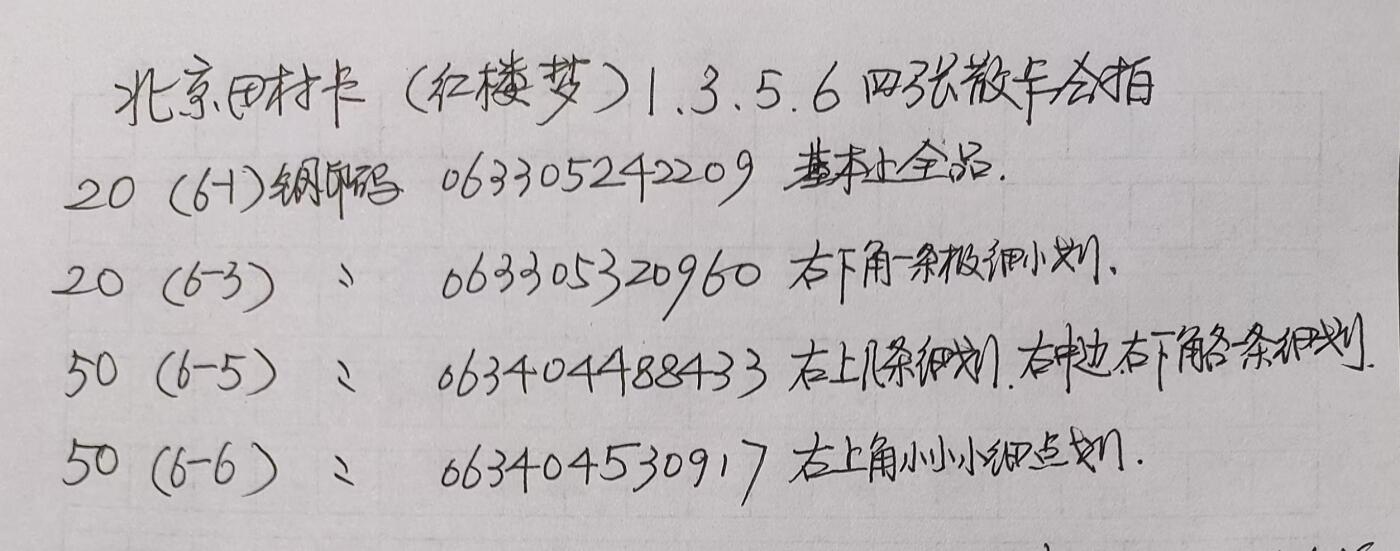 北京田村卡(红楼梦)1.3.5.6四张散卡合拍
20 (6-1)钢印码 063305242209 基本上全品.
20 (6-3) 〃 063305320960 右下角一条极细小划.
50 (6-5) 〃 063404488433 右上几条细划.右中边右下角各一条细划.
50 (6-6) 〃 063404530917 右上角小小小细点划.